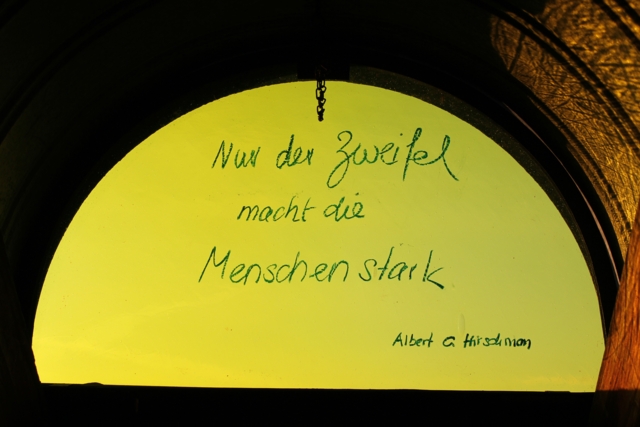 Nur der Zweifel
macht die
Menschen stark
Albert O Hirschman